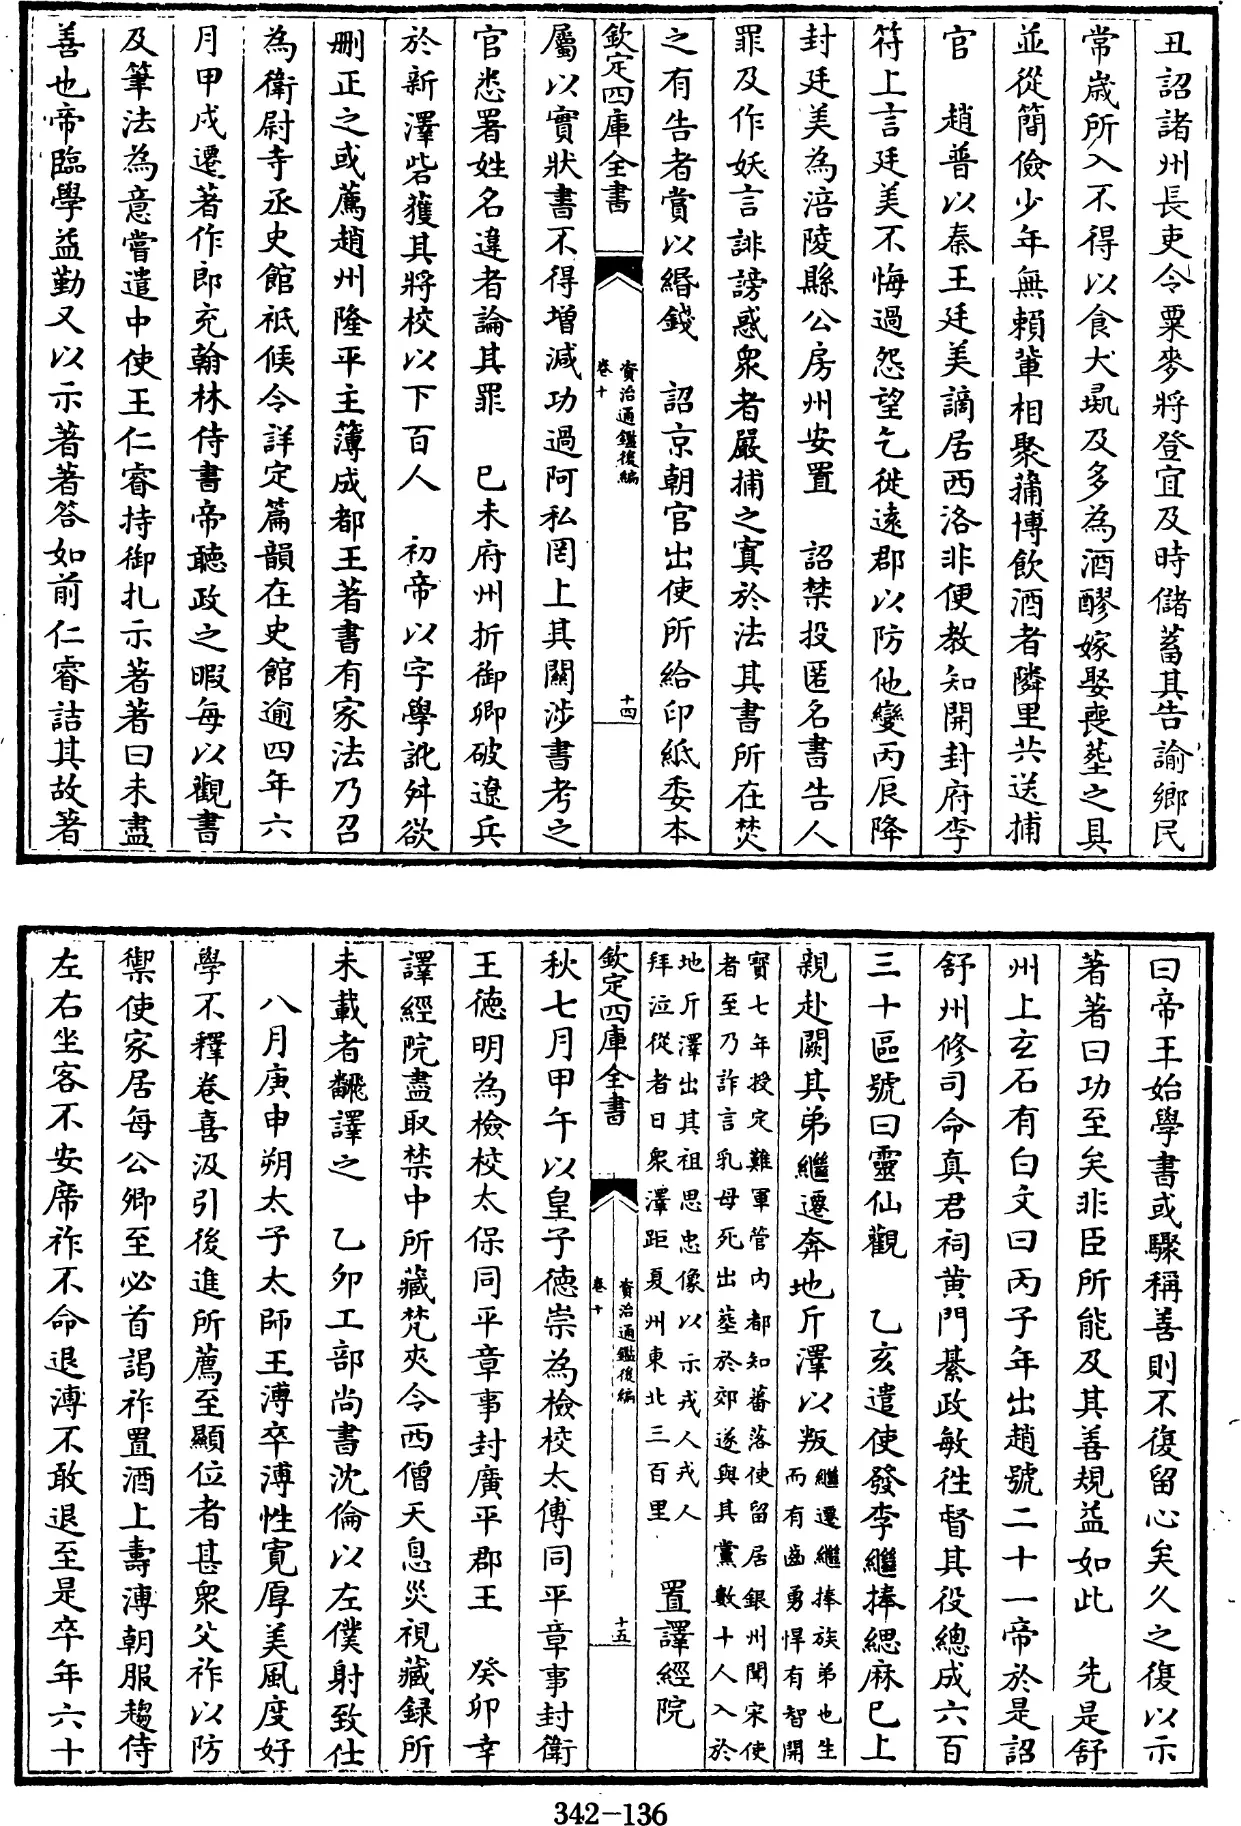 丑詔諸州長吏令粟麥將登宜及時儲蓄其告諭鄉民
常歲所入不得以食犬彘及多為酒醪嫁娶喪塟之具
並從簡儉少年無賴輩相聚蒱博飲酒者隣里共送捕
官　趙普以秦王廷美謫居西洛非便教知開封府李
符上言廷美不悔過怨望乞徙遠郡以防他變丙辰降
封廷美為涪陵縣公房州安置　詔禁投匿名書告人
罪及作妖言誹謗惑衆者嚴捕之寘於法其書所在焚
之有告者賞以緡錢　詔京朝官出使所給印紙委本
欽定四庫全書
資治通鑑後編
卷十
十四
屬以實狀書不得増減功過阿私罔上其關涉書考之
官悉署姓名違者論其罪　己未府州折御卿破遼兵
於新澤砦獲其將校以下百人　初帝以字學訛舛欲
刪正之或薦趙州隆平主簿成都王著書有家法乃召
為衛尉寺丞史館祇候令詳定篇韻在史館逾四年六
月甲戌遷著作郎充翰林侍書帝聽政之暇每以觀書
及筆法為意嘗遣中使王仁睿持御札示著著曰未盡
善也帝臨學益勤又以示著著答如前仁睿詰其故著
曰帝王始學書或驟稱善則不復留心矣久之復以示
著著曰功至矣非臣所能及其善規益如此　先是舒
州上玄石有白文曰丙子年出趙號二十一帝於是詔
舒州修司命真君祠黄門綦政敏往督其役總成六百
三十區號曰靈仙觀　乙亥遣使發李繼捧緦麻已上
親赴闕其弟繼遷奔地斤澤以叛
繼遷繼捧族弟也生
而有齒勇悍有智開
寳七年授定難軍管内都知蕃落使留居銀州聞宋使
者至乃詐言乳母死出塟於郊遂與其黨數十人入於
地斤澤出其祖思忠像以示戎人戎人
拜泣從者日衆澤距夏州東北三百里
置譯經院
欽定四庫全書
資治通鑑後編
卷十
十五
秋七月甲午以皇子德崇為檢校太傅同平章事封衛
王德明為檢校太保同平章事封廣平郡王　癸卯幸
譯經院盡取禁中所藏梵夾令西僧天息災視藏録所
未載者翻譯之　乙卯工部尚書沈倫以左僕射致仕
八月庚申朔太子太師王溥卒溥性寛厚美風度好
學不釋卷喜汲引後進所薦至顯位者甚衆父祚以防
禦使家居每公卿至必首謁祚置酒上壽溥朝服趨侍
左右坐客不安席祚不命退溥不敢退至是卒年六十
342-136